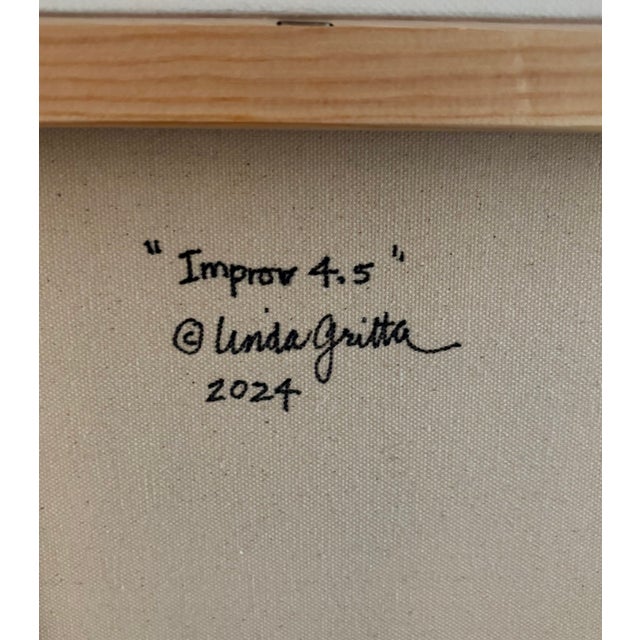 "Improv 4.5"
© Linda Gritta
2024